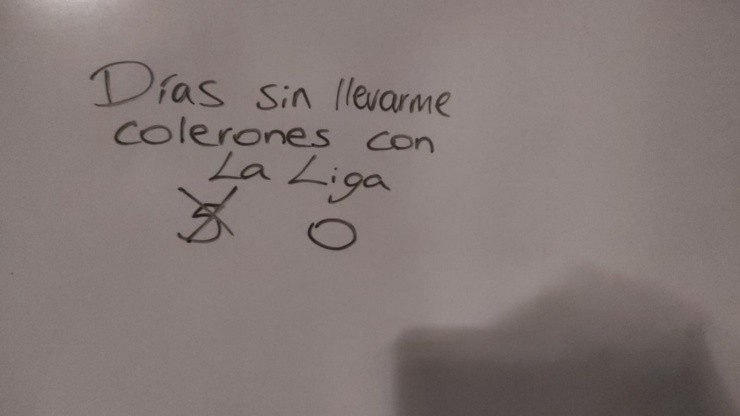 Días sin llevarme
colerones con
La Liga
5 0